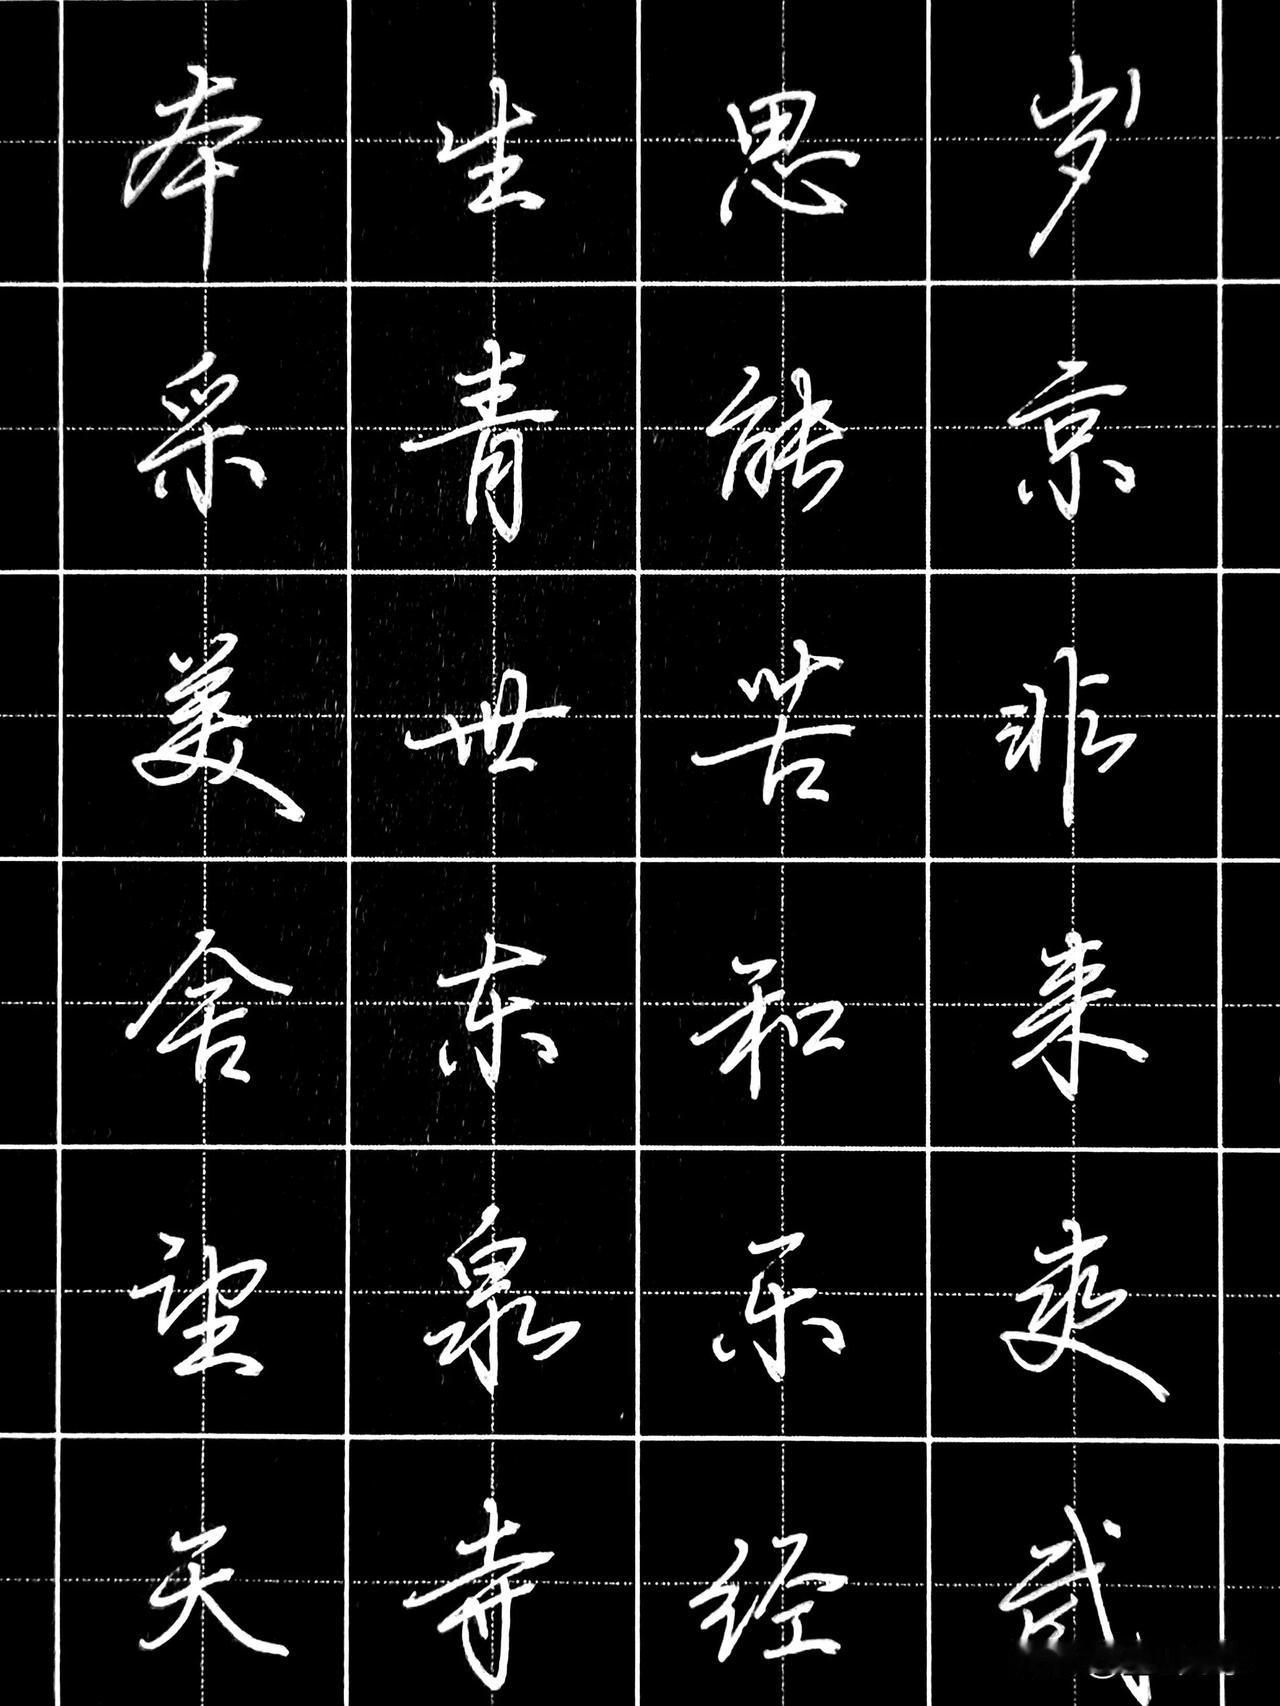 本生思岁
采青能京
美世苦非
舍东和来
望泉乐爽
天寺经武